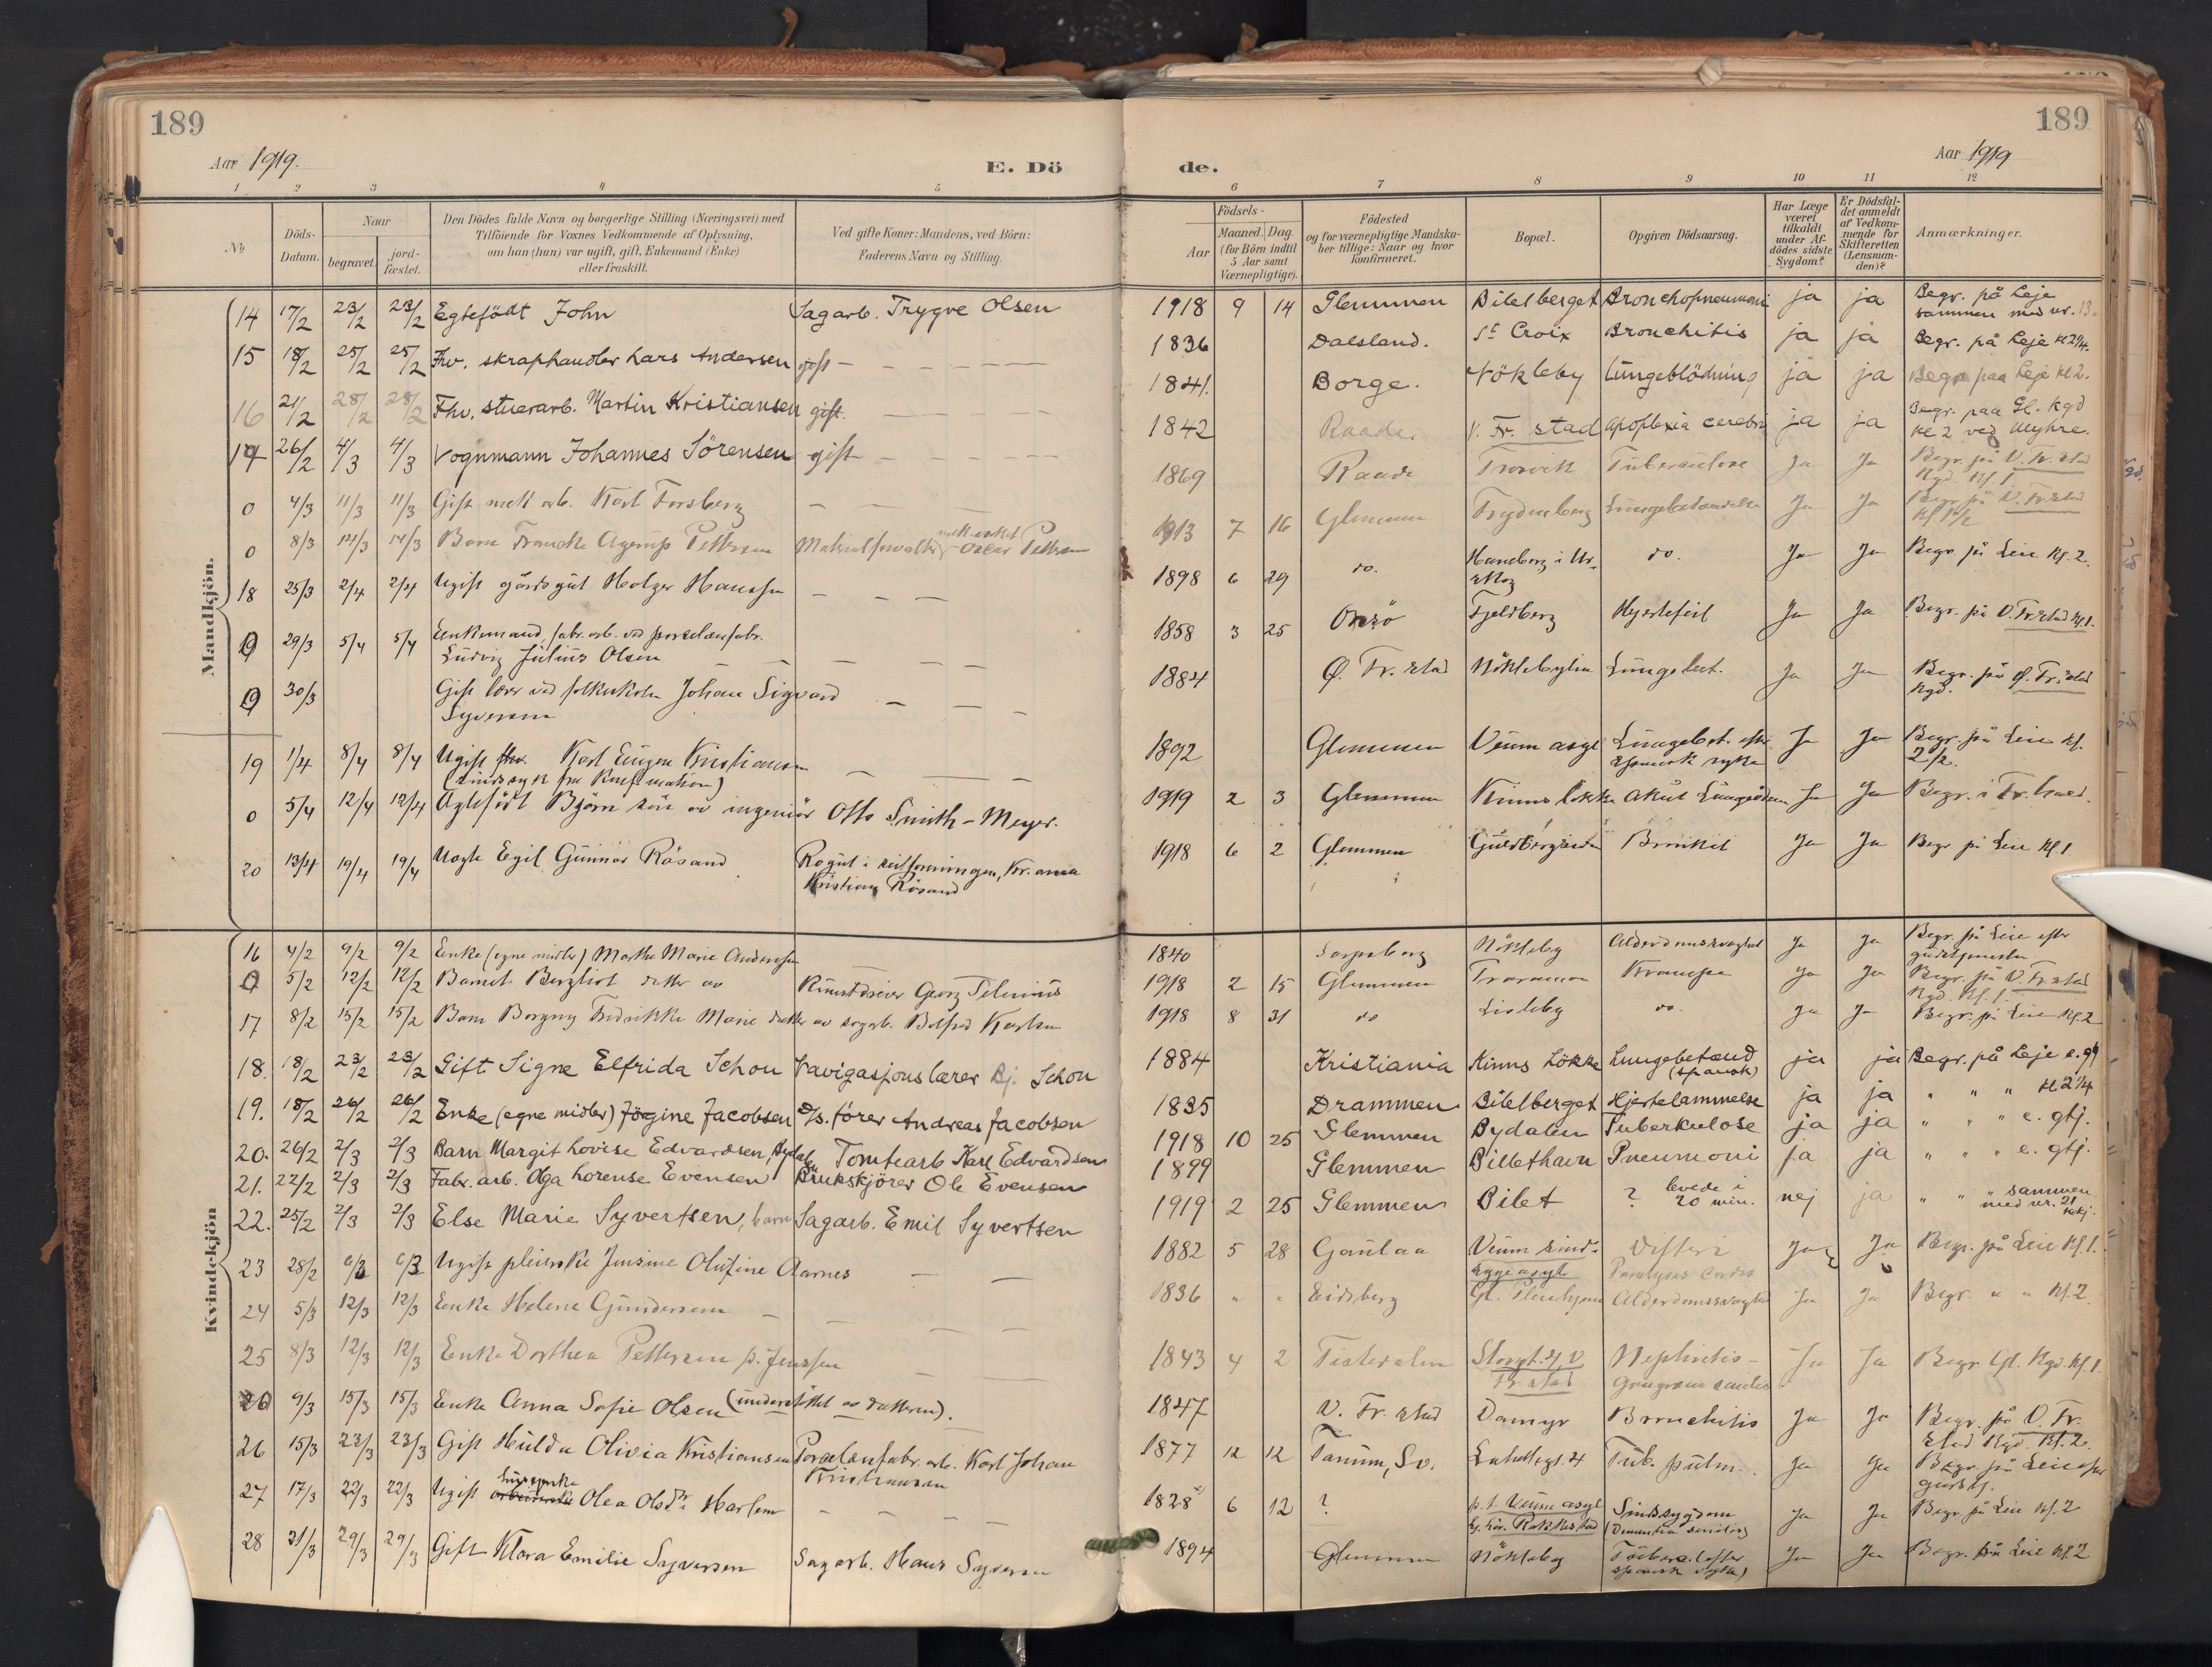 189
189
Aar 1919.
E. Dö
de.
Aar 1919
1 2 3 4 5 6 7 8 9 10 11 12
No
Döds-Datum.
Naar
begravet.
jord-fæstet.
Den Dödes fulde Navn og borgerlige Stilling (Næringsvei) med
Tilföiende for Voxnes Vedkommende af Oplysning,
om han (hun) var ugift, gift, Enkemand (Enke)
eller fraskilt.
Ved gifte Koner: Mandens, ved Börn:
Faderens Navn og Stilling.
Födsels-
Aar
Maaned. Dag.
(for Börn indtil
5 Aar samt
Værnepligtige).
Födested
og for værnepligtige Mandska-
ber tillige: Naar og hvor
konfirmeret.
Bopæl.
Opgiven Dödsaarsag.
Har Læge
været
tilkaldt
under Af-
dödes sidste
Sygdom?
Er Dödsfal-
det anmeldt
af Vedkom-
mende for
Skifteretten
(Lensman-
den)?
Anmærkninger.
Mandkjön.
14 17/2 23/2 23/2 Egtefödt John Sagarb. Trygve Olsen 1918 9 14 Glemmen Bilelberget Bronchopneumoni ja ja Begr. på Leje
sammen med nr. 13.
15 18/2 25/2 25/2 Fhv. skraphandler Lars Andersen gift 1836 Dalsland. St Croix Bronchitis ja ja Begr. på Leje kl 2 1/4.
16 21/2 28/2 28/2 Fhv. stuerarb. Martin Kristiansen gift. 1841. Borge. Nökleby Lungeblödning ja ja Begr paa Leje kl 2.
17 26/2 4/3 4/3 Vognmann Johannes Sörensen gift 1842 Raade. V. Fr. stad apoplexia cerebri ja ja Begr. paa Gl. kgd
kl 2 ved Myhre.
0 4/3 11/3 11/3 Gift mek arb. Karl Forsberg 1869 Raade Trosvik Tuberculose Ja Ja Begr. på V. Fr. stad
Kgd. Kl. 1
0 8/3 14/3 14/3 Barn Francke Agerup Pettersen Materialforvalter Oscar Pettersen 1913 7 16 Glemmen Frydenberg Lungebetændelse Ja Ja Begr på V. Fr stad
Kl 1 1/2
18 25/3 2/4 2/4 Ugift gårdsgut Holger Hanssen 1898 6 29 do. do. Ja Ja Begr. på Leie Kl. 2.
0 29/3 5/4 5/4 Enkemand, fabr. arb. ved porselænfabr.
Ludvig Julius Olsen 1858 3 25 Onsö Fjeldberg Hjertefeil Ja Ja Begr. på V. Fr stad Kl. 1.
0 30/3 Gift lærer ved folkeskolen Johan Sigvard
Syversen 1884 Ø. Fr. stad Nöklebylia Lungebet. Ja Ja Begr. på Ø. Fr. stad
Kgd.
19 1/4 8/4 8/4 Ugift Karl Eugen Kristiansen
(sindssyk fra Konfirmation) 1892 Glemmen Veum asyl Lungebet. efter
spansk syke Ja Ja Begr. på Leie Kl.
2 1/2.
0 5/4 12/4 12/4 Ægtefödt Björn sön av ingeniör Otto Smith-Meyer. 1919 2 3 Glemmen Kinnslökke Akut Lungeödem Ja Ja Begr. i Fr. hald.
20 13/4 19/4 19/4 Uægte Egil Gunnar Råsand
Kristian Råsand 1918 6 2 Glemmen Bronkit Ja Ja Begr på Leie Kl 1
Kvindekjön
16 4/2 9/2 9/2 Enke (egne midler) Marthe Marie Andersen 1840 Sarpsborg Nökleby Alderdomssvaghet Ja Ja Begr. på Leie efter
gudstjenesten
0 5/2 12/2 12/2 Barnet Bergliot datter av Kunstdreier Georg Telenius 1918 2 15 Glemmen Traraveien Krampe Ja Ja Begr. på V. Fr stad
Kgd. Kl. 1.
17 8/2 15/2 15/2 Barn Borgny Fredrikke Marie datter av sagarb. Botfred Karlsen 1918 8 31 do Lisleby do. Ja Ja Begr. på Leie Kl. 2
18. 18/2 23/2 23/2 Gift Signe Elfrida Schou Navigasjonslærer Bj. Schou 1884 Kristiania Kinns Lökke Lungebetænd
(spansk) ja ja Begr. på Leje e. gtj
19. 18/2 26/2 26/2 Enke (egne midler) Jögine Jacobsen D/s. förer Andreas Jacobsen 1835 Drammen Bilelberget Hjertelammelse ja ja " " " kl 2 1/4
20. 26/2 2/3 2/3 Barn Margit Lovise Edvardsen, Bydalen Tomtearb Karl Edvardsen 1918 10 25 Glemmen Bydalen Tuberkulose ja ja " " " e. gtj.
21. 22/2 2/3 2/3 Fabr. arb. Olga Lorense Evensen Brukskjörer Ole Evensen 1899 Glemmen Billethavn Pneumoni ja ja " " " e. gtj.
22. 25/2 2/3 2/3 Else Marie Syvertsen, barn Sagarb. Emil Syvertsen 1919 2 25 Glemmen Bilet ? levede i
20 min. nej ja " " " sammen
med nr. 21
kvkj.
23 28/2 6/3 6/3 Ugift pleierske Jensine Olufine Aarnes 1882 5 28 Gaulaa Veum sinds-
sygeasyl Difteri
Paralysis cordis Ja Ja Begr. på Leie Kl. 1.
24 5/3 12/3 12/3 Enke Helene Gundersen 1836 " " Eidsberg Gl. Pleiehjem Alderdomssvaghet Ja Ja Begr. " " Kl. 2
25 8/3 12/3 12/3 Enke Dorthea Pettersen f. Jenssen 1843 4 2 Tistedalen Storgt. 4, V.
Fr stad Nephritis-
Gangræna senilis Ja Ja Begr. Gl. Kgd. Kl. 1
0 9/3 15/3 15/3 Enke Anna Sofie Olsen (understöttet av datteren). 1847 V. Fr. stad Damyr Bronchitis Ja Ja Begr. på V. Fr.
stad Kgd. Kl. 2.
26 15/3 23/3 23/3 Gift Hulda Olivia Kristiansen Porselænfabr. arb. Karl Johan
Kristiansen 1877 12 12 Tanum, Sv. Tub. pulm. Ja Ja Begr. på Leie efter
gudstj.
27 17/3 22/3 22/3 Ugift Olea Olsdtr Harlem 1828 6 12 ? p.t. Veum asyl
Rakkestad Sindssygdom
(Dementia senilis) Ja Ja Begr. på Leie Kl. 2
28 21/3 29/3 29/3 Gift Klara Emilie Syversen Sagarb. Hans Syversen 1894 Glemmen Nökleby Tuberc. (efter
spansk syke) Ja Ja Begr. på Leie Kl. 2